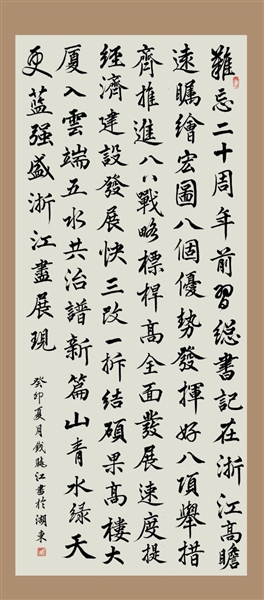 難忘二十周年前習総書記在浙江高瞻
遠矚繪宏圖八個優勢發揮好八項舉措
齊推進八八戰略標桿高全面發展速度提
經濟建設發展快三改一拆結碩果高樓大
廈入雲端五水共治譜新篇山青水綠天
更藍强盛浙江盡展現
癸卯夏月錢江書於湖東